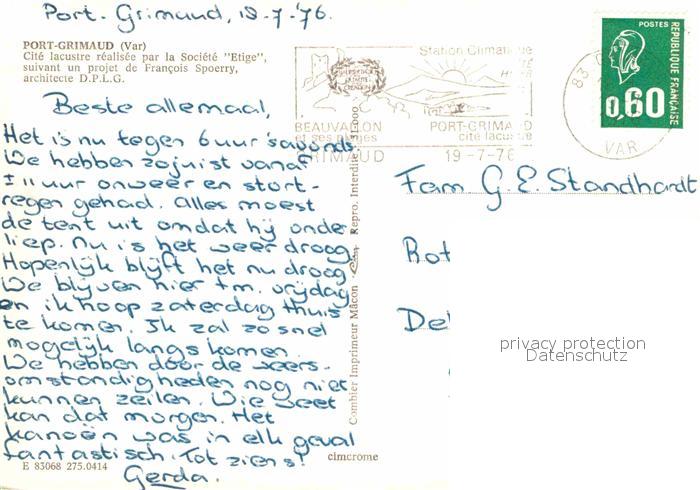 Port. Grimaud, 19-7-'76.
PORT-GRIMAUD (Var)
Cité lacustre réalisée par la Société "Etige",
suivant un projet de François Spoerry,
architecte D.P.L.G.
Beste allemaal,
Het is nu tegen 6 uur 'savonds.
We hebben zojuist vanaf
± 11 uur onweer en stort-
regen gehad. Alles moest
de tent uit omdat hij onder
liep. Nu is het weer droog.
Hopenlijk blijft het nu droog
We blijven hier tm. vrijdag
en ik hoop zaterdag thuis
te komen. Ik zal zo snel
mogelijk langs komen.
We hebben door de weers-
omstandigheden nog niet
kunnen zeilen. Wie weet
kan dat morgen. Het
kanoën was in elk geval
fantastisch. Tot ziens!
Gerda.
E 83068 275.0414
cimcrome
Combier Imprimeur Mâcon
Repro. Interdite
Station Climatique
BEAUVALLON
et ses
GRIMAUD
PORT-GRIMAUD
cité lacustre
19-7-76
83
VAR
POSTES
REPUBLIQUE FRANÇAISE
0,60
Fam G. E. Standhardt
Rot
De
privacy protection
Datenschutz